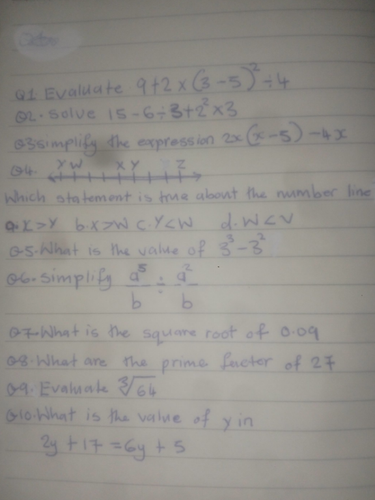 Q1 Evaluate 9+2×(3-5)²÷4
Q2. Solve 15-6÷3+2²×3
Q3 simplify the expression 2x(x-5)-4x
Q4. Y W X Y Z
Which statement is true about the number line
a. X>Y b. X>W c. Y<W d. W<V
Q5. What is the value of 3³-3²
Q6. Simplify a⁵/b ÷ a²/b
Q7. What is the square root of 0.09
Q8. What are the prime factor of 27
Q9. Evaluate ∛64
Q10. What is the value of y in
2y+17=6y+5